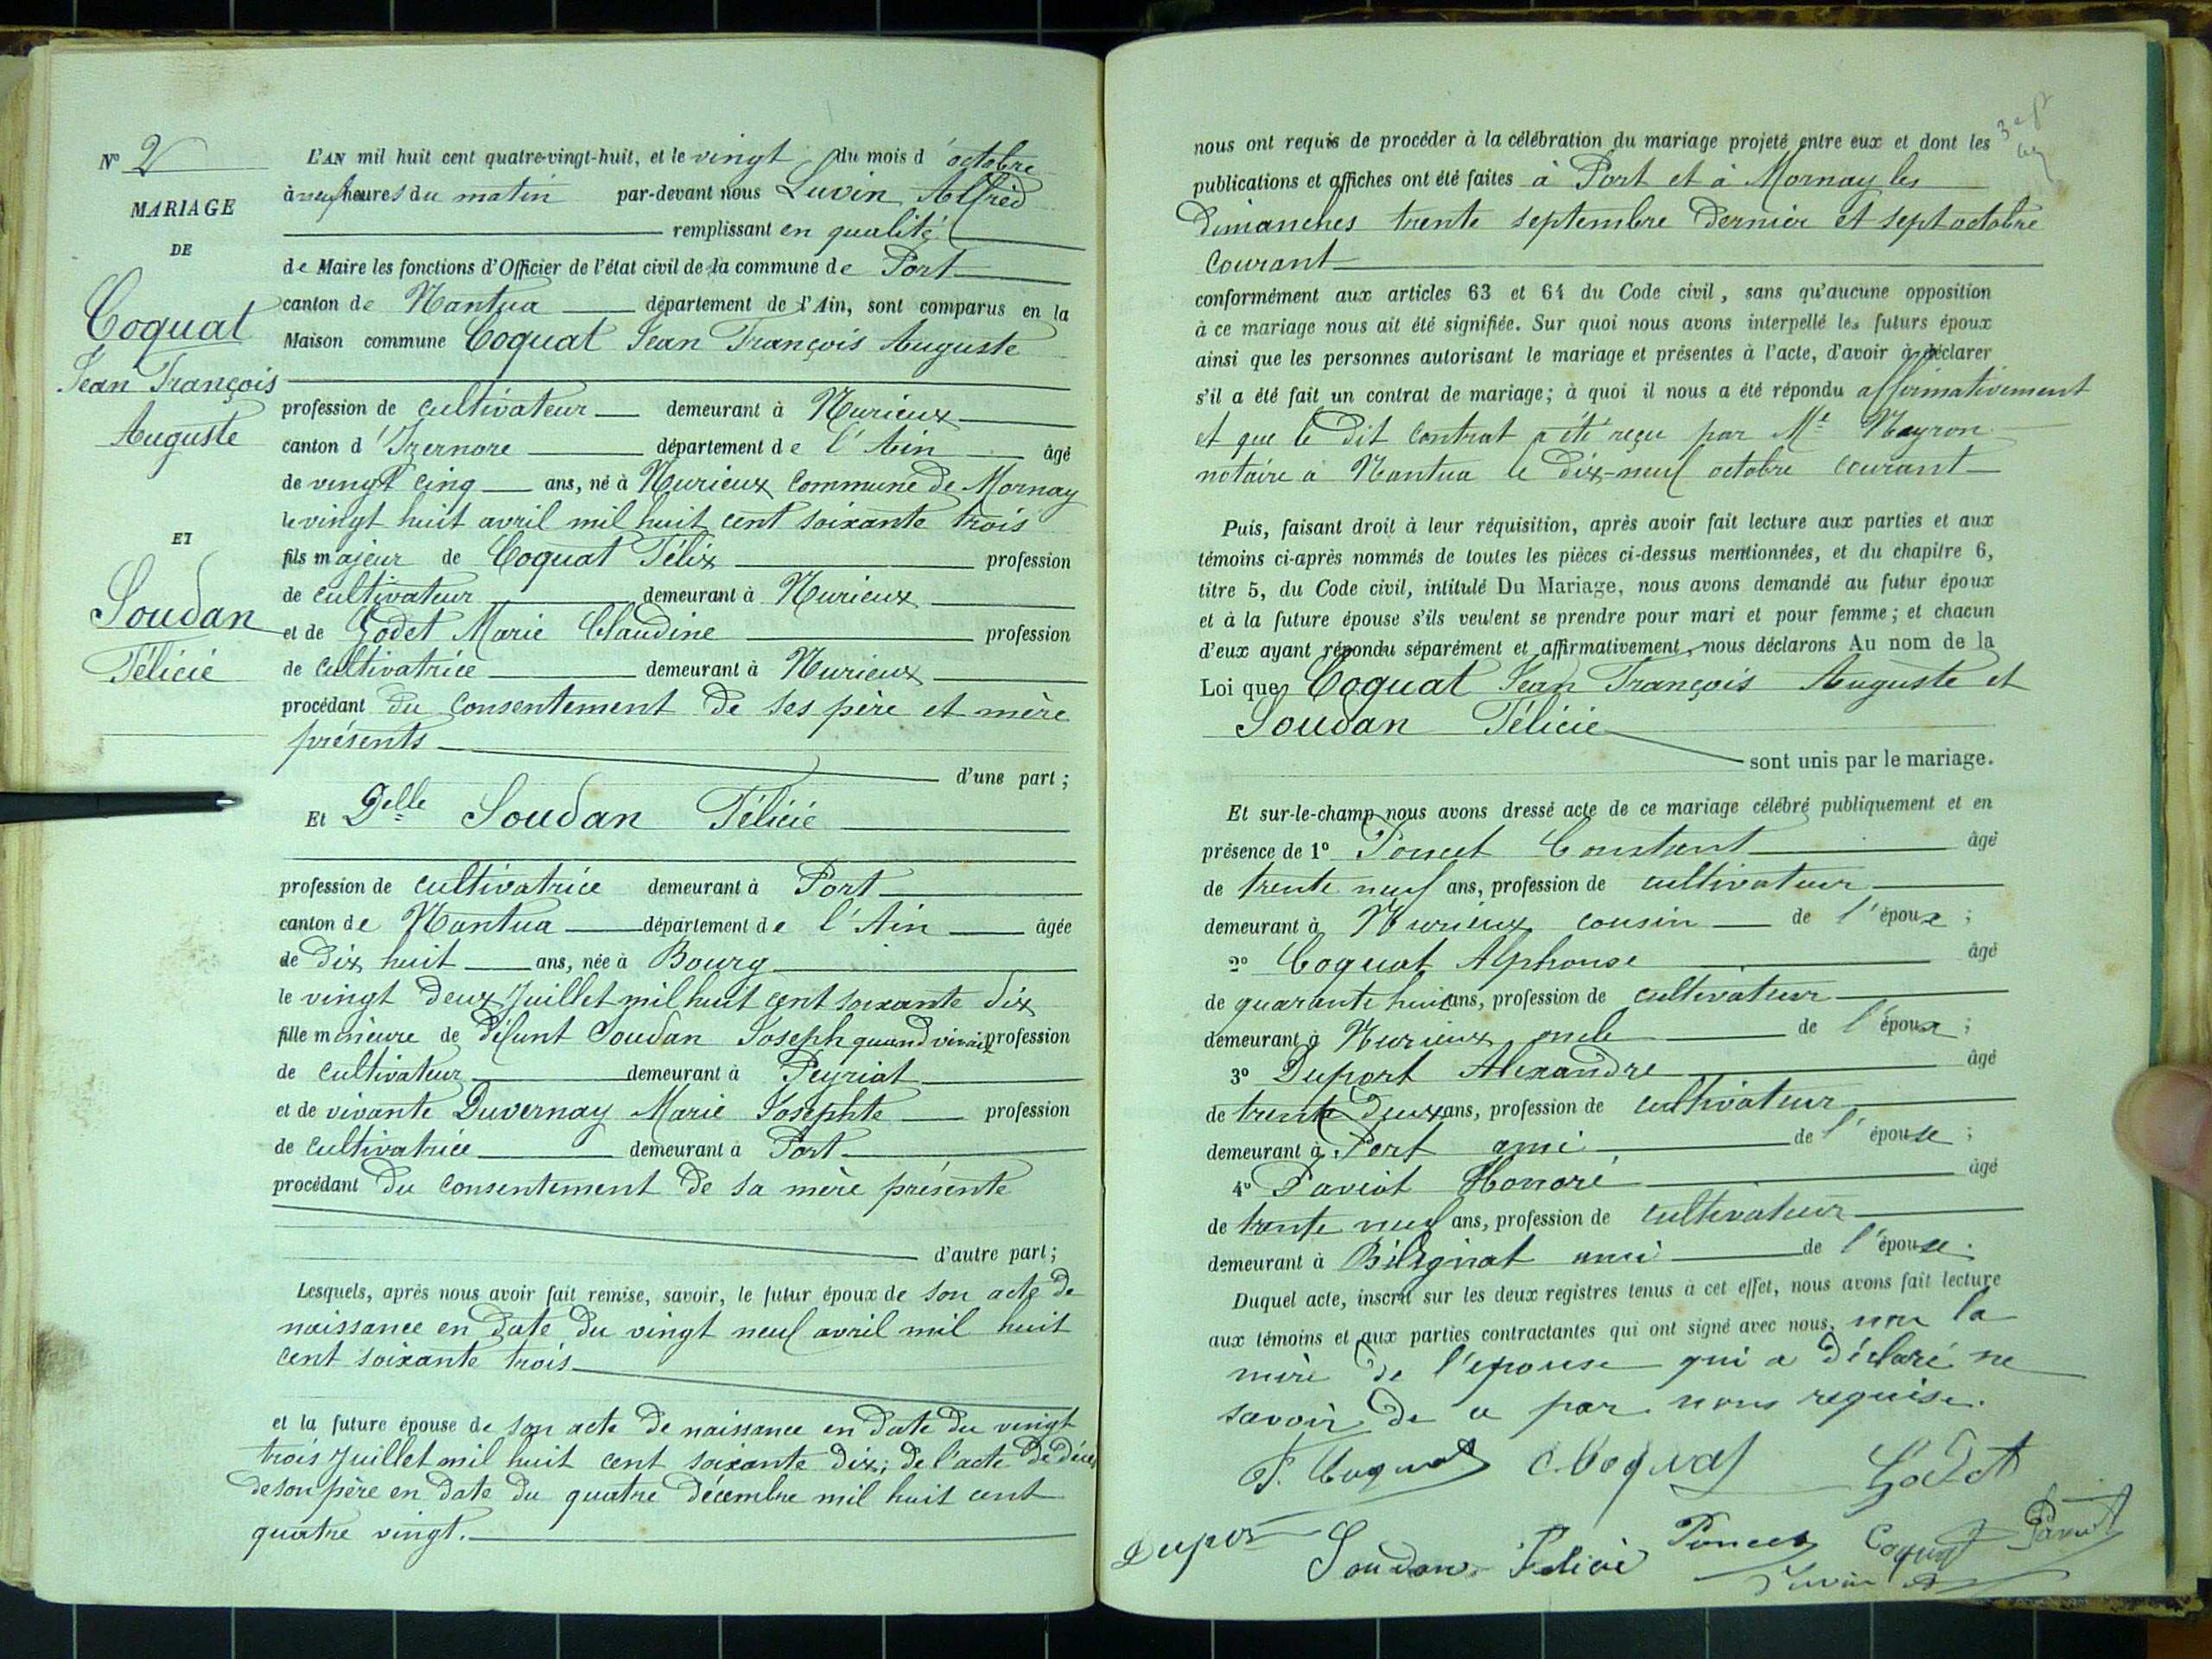 N° 2
MARIAGE
DE
Coquat
Jean François
Auguste
ET
Soudan
Félicie
L'AN mil huit cent quatre-vingt-huit, et le vingt du mois d'octobre
à neuf heures du matin par-devant nous Luvin Alfred
remplissant en qualité
de Maire les fonctions d'Officier de l'état civil de la commune de Port
canton de Nantua département de l'Ain, sont comparus en la
Maison commune Coquat Jean François Auguste
profession de cultivateur demeurant à Nurieux
canton d'Izernore département de l'Ain âgé
de vingt cinq ans, né à Nurieux commune de Mornay
le vingt huit avril mil huit cent soixante trois
fils majeur de Coquat Félix profession
de cultivateur demeurant à Nurieux
et de Godet Marie Claudine profession
de cultivatrice demeurant à Nurieux
procédant du consentement de ses père et mère
présents
d'une part ;
Et Delle Soudan Félicie
profession de cultivatrice demeurant à Port
canton de Nantua département de l'Ain âgée
de dix huit ans, née à Bourg
le vingt deux Juillet mil huit cent soixante dix
fille mineure de défunt Soudan Joseph quand vivait profession
de cultivateur demeurant à Peyriat
et de vivante Duvernay Marie Josephte profession
de cultivatrice demeurant à Port
procédant du consentement de sa mère présente
d'autre part ;
Lesquels, après nous avoir fait remise, savoir, le futur époux de son acte de
naissance en date du vingt neuf avril mil huit
cent soixante trois
et la future épouse de son acte de naissance en date du vingt
trois Juillet mil huit cent soixante dix ; de l'acte de décès
de son père en date du quatre décembre mil huit cent
quatre vingt.
nous ont requis de procéder à la célébration du mariage projeté entre eux et dont les
publications et affiches ont été faites à Port et à Mornay les
dimanches trente septembre dernier et sept octobre
courant
conformément aux articles 63 et 64 du Code civil, sans qu'aucune opposition
à ce mariage nous ait été signifiée. Sur quoi nous avons interpellé les futurs époux
ainsi que les personnes autorisant le mariage et présentes à l'acte, d'avoir à déclarer
s'il a été fait un contrat de mariage ; à quoi il nous a été répondu affirmativement
et que le dit contrat a été reçu par Me Neyron
notaire à Nantua le dix-neuf octobre courant
Puis, faisant droit à leur réquisition, après avoir fait lecture aux parties et aux
témoins ci-après nommés de toutes les pièces ci-dessus mentionnées, et du chapitre 6,
titre 5, du Code civil, intitulé Du Mariage, nous avons demandé au futur époux
et à la future épouse s'ils veulent se prendre pour mari et pour femme ; et chacun
d'eux ayant répondu séparément et affirmativement, nous déclarons Au nom de la
Loi que Coquat Jean François Auguste et
Soudan Félicie
sont unis par le mariage.
Et sur-le-champ nous avons dressé acte de ce mariage célébré publiquement et en
présence de 1° Poncet Constant âgé
de trente neuf ans, profession de cultivateur
demeurant à Nurieux cousin de l'époux ;
2° Coquat Alphonse âgé
de quarante huit ans, profession de cultivateur
demeurant à Nurieux oncle de l'époux ;
3° Duport Alexandre âgé
de trente deux ans, profession de cultivateur
demeurant à Port ami de l'épouse ;
4° Paviot Honoré âgé
de trente neuf ans, profession de cultivateur
demeurant à Bélignat ami de l'épouse.
Duquel acte, inscrit sur les deux registres tenus à cet effet, nous avons fait lecture
aux témoins et aux parties contractantes qui ont signé avec nous, non la
mère de l'épouse qui a déclaré ne
savoir de ce par nous requise.
F. Coquat C. Coquat Godet
Dupor Soudan Félicie Poncet Coquat Paviot
Luvin A